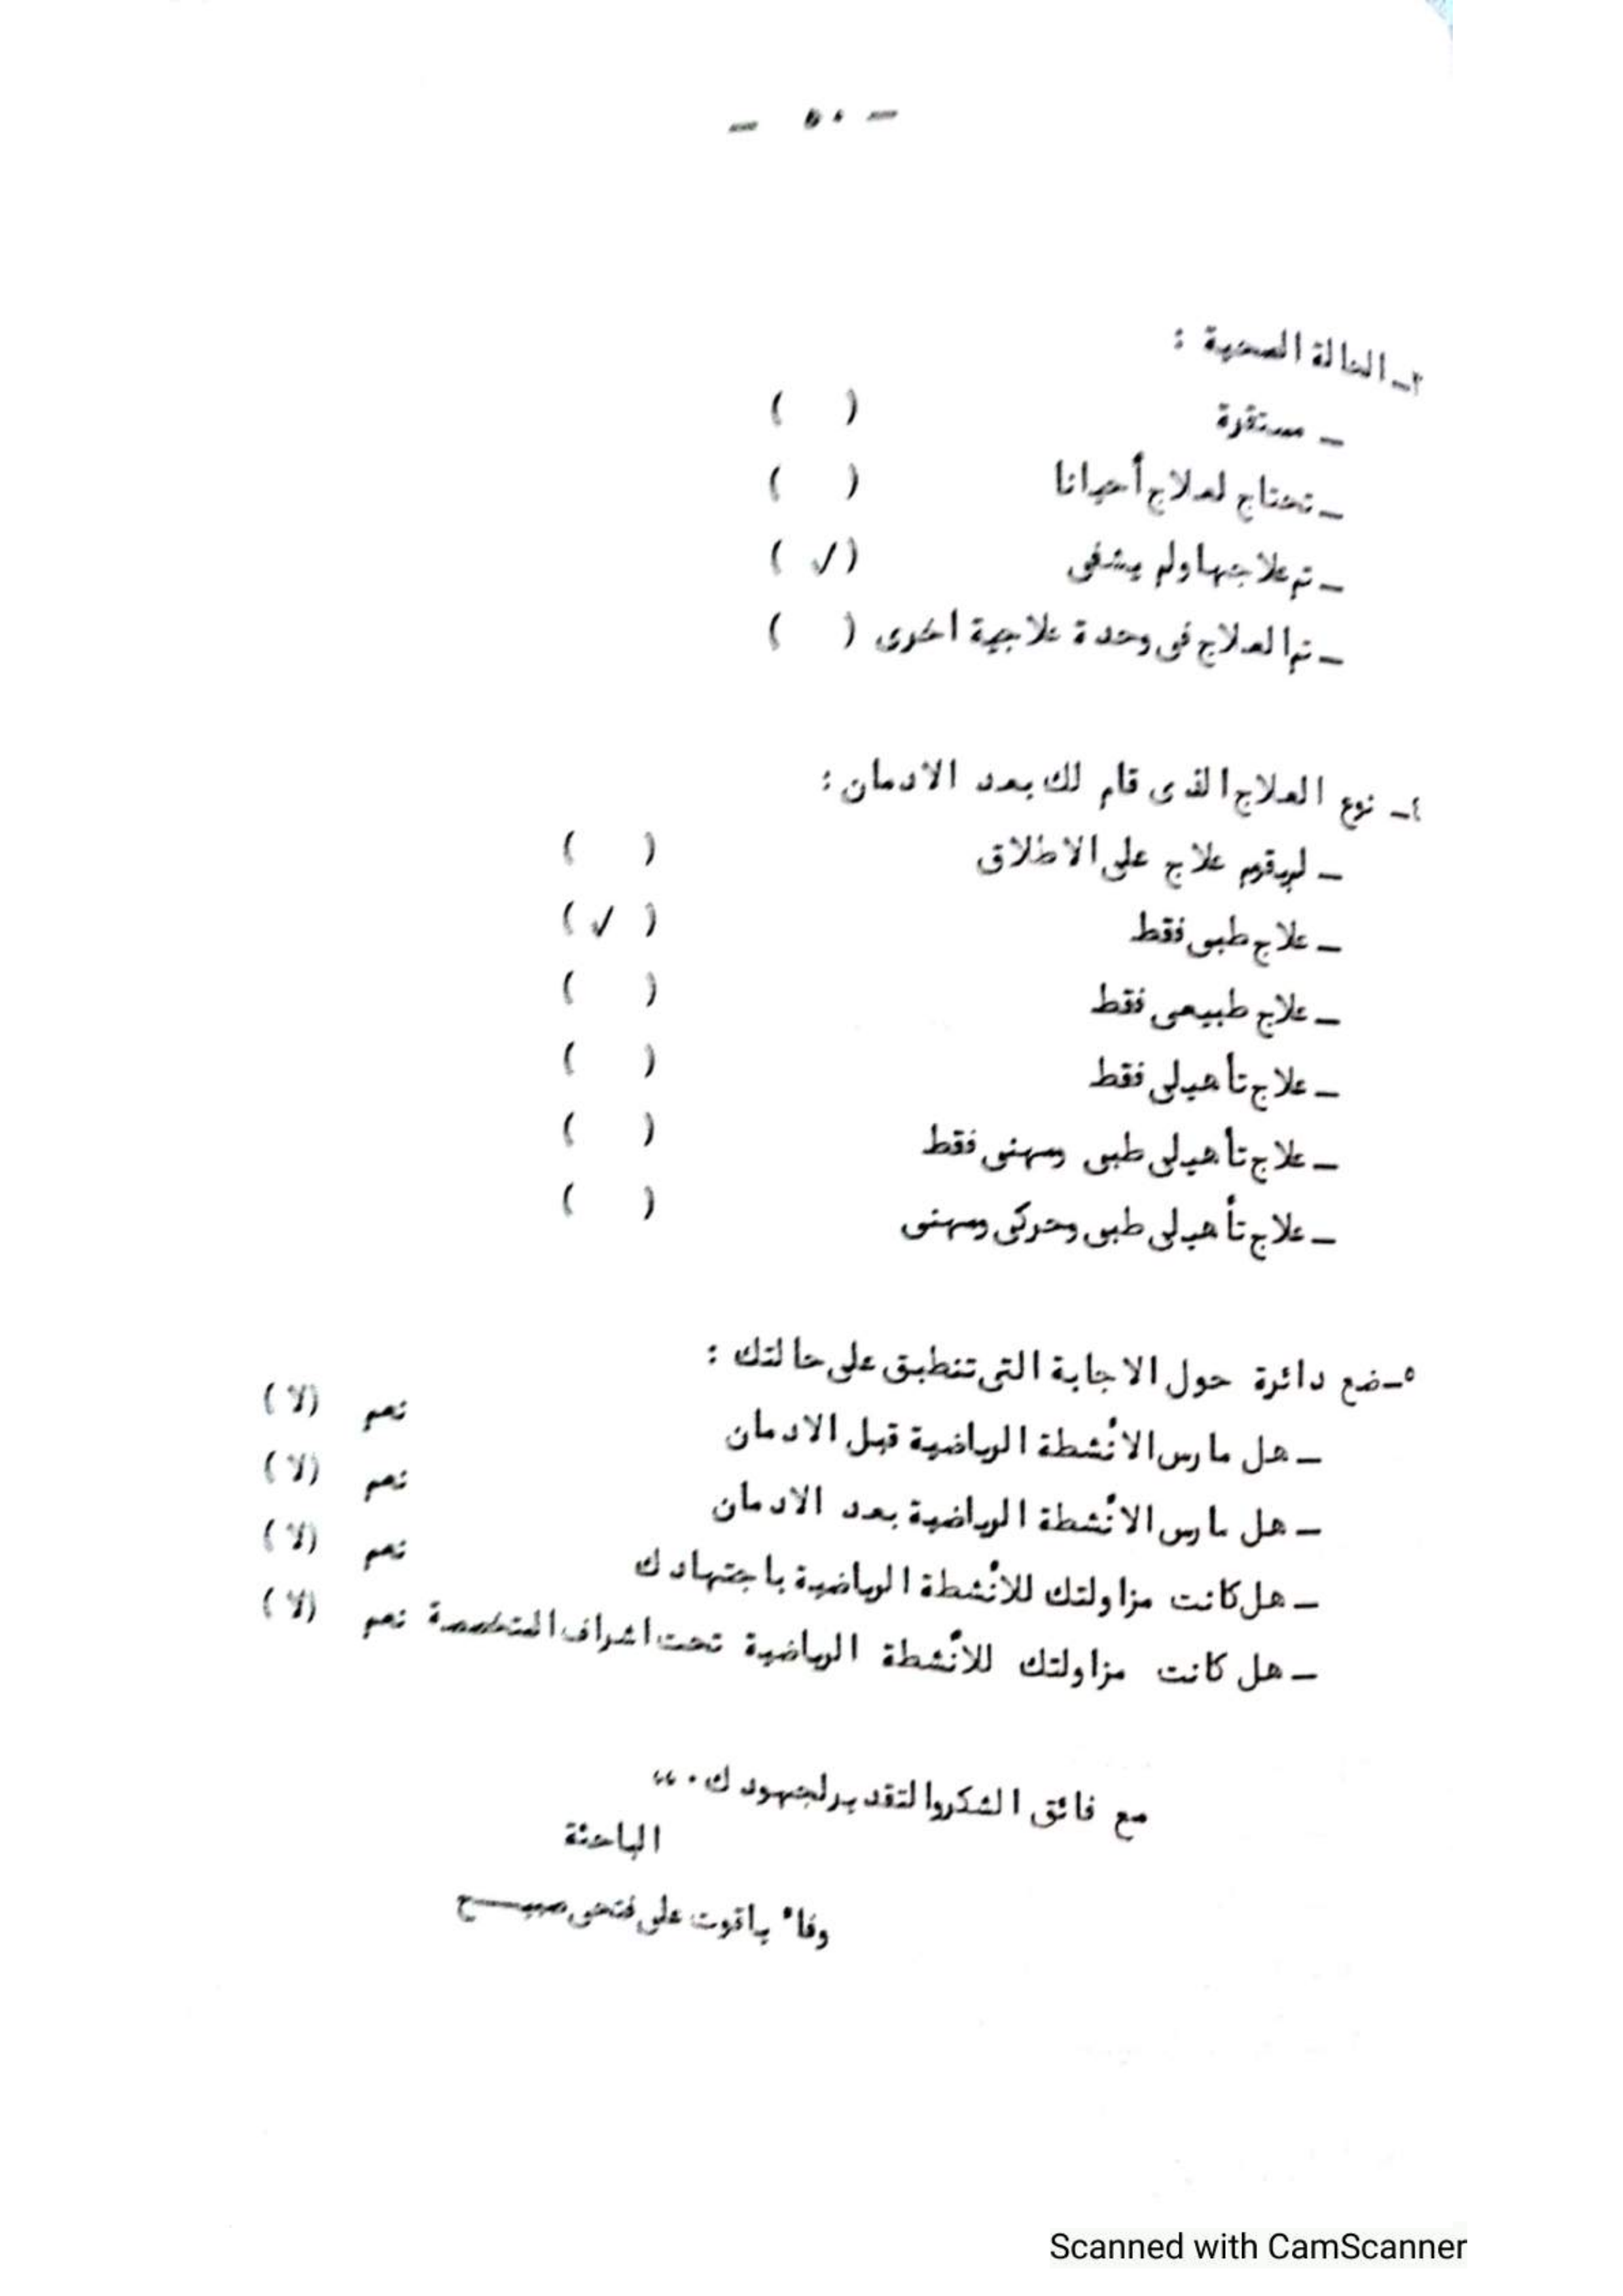 - ٥٠ -
٣- الحالة الصحية :
- مستقرة ( )
- تحتاج لعلاج أحيانا ( )
- تم علاجها ولم يشفى ( √ )
- تم العلاج فى وحدة علاجية اخرى ( )
٤- نوع العلاج الذى قام لك بعد الادمان :
- لم يقوم علاج على الاطلاق ( )
- علاج طبى فقط ( √ )
- علاج طبيعى فقط ( )
- علاج تأهيلى فقط ( )
- علاج تأهيلى طبى ومهنى فقط ( )
- علاج تأهيلى طبى وحركى ومهنى ( )
٥- ضع دائرة حول الاجابة التى تنطبق على حالتك :
- هل مارس الانُشطة الرياضية قبل الادمان نعم (لا)
- هل مارس الانُشطة الرياضية بعد الادمان نعم (لا)
- هل كانت مزاولتك للانُشطة الرياضية باجتهادك نعم (لا)
- هل كانت مزاولتك للانُشطة الرياضية تحت اشراف المتخصصة نعم (لا)
مع فائق الشكر والتقدير لجهودك ٠ ،،
الباحثة
وفاء ياقوت على فتحى صبيـــح
Scanned with CamScanner